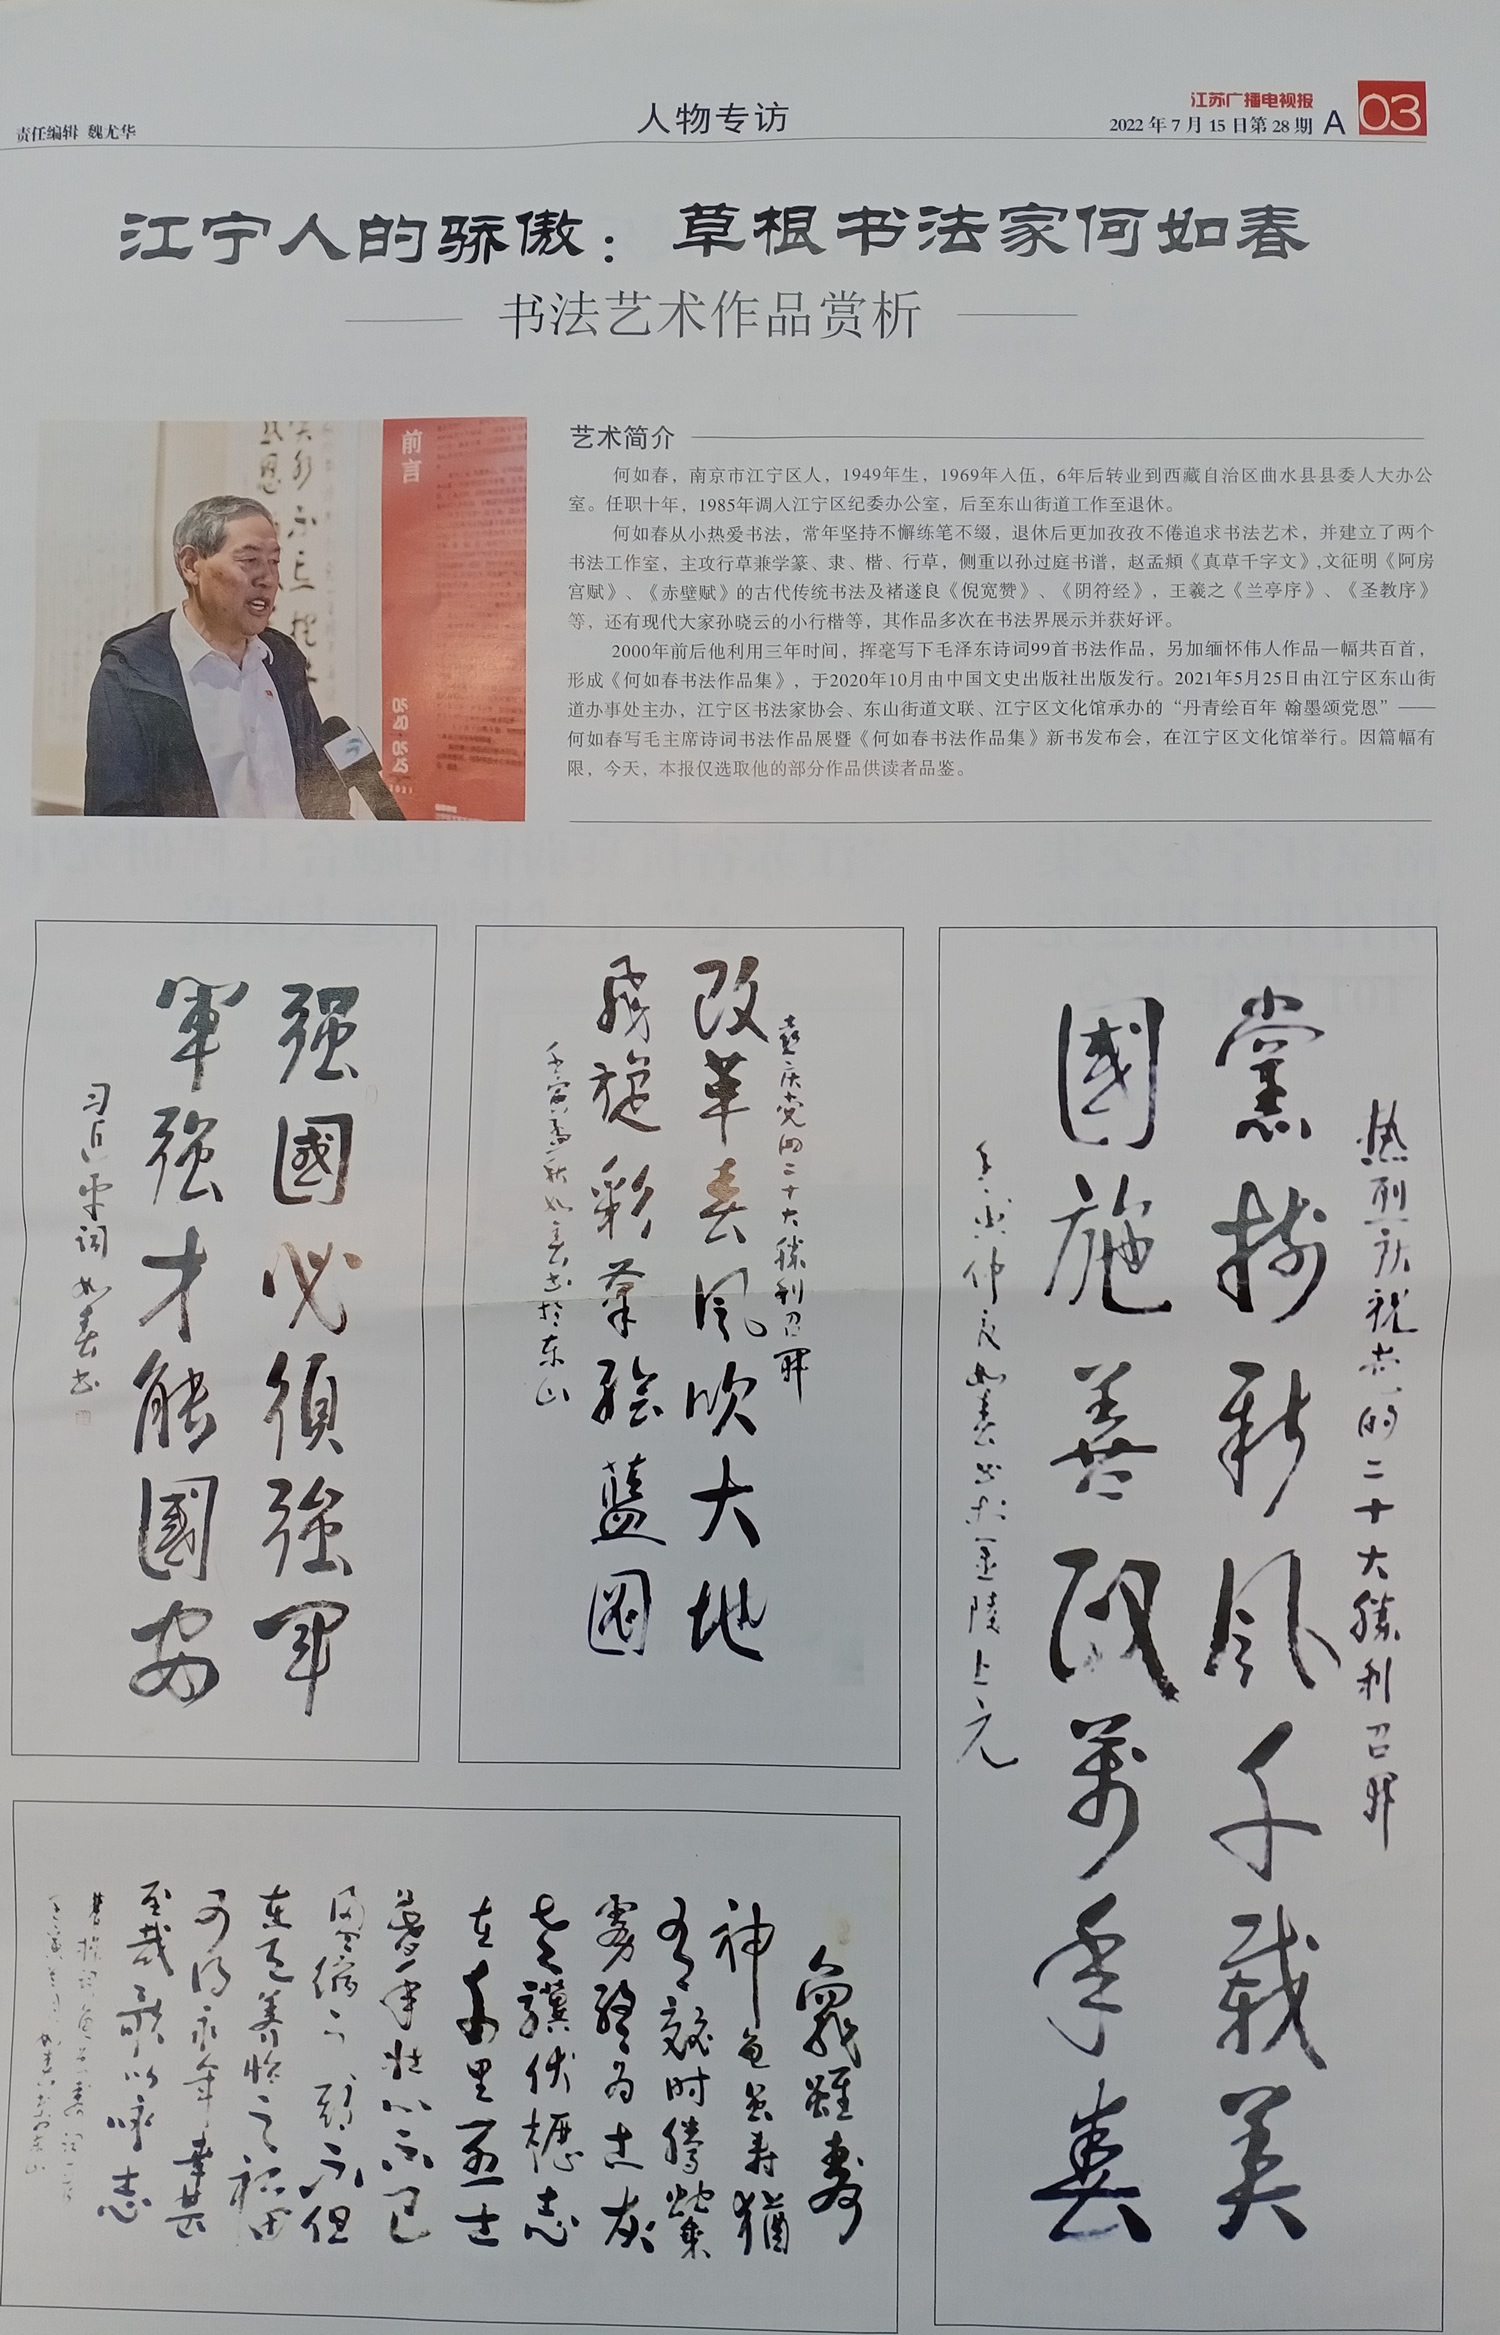 责任编辑 魏尤华
人物专访
江苏广播电视报
2022年7月15日第28期 A 03
江宁人的骄傲：草根书法家何如春
书法艺术作品赏析
前言
05
20
05
25
2021
艺术简介
何如春，南京市江宁区人，1949年生，1969年入伍，6年后转业到西藏自治区曲水县县委人大办公
室。任职十年，1985年调入江宁区纪委办公室，后至东山街道工作至退休。
何如春从小热爱书法，常年坚持不懈练笔不缀，退休后更加孜孜不倦追求书法艺术，并建立了两个
书法工作室，主攻行草兼学篆、隶、楷、行草，侧重以孙过庭书谱，赵孟頫《真草千字文》,文征明《阿房
宫赋》、《赤壁赋》的古代传统书法及褚遂良《倪宽赞》、《阴符经》，王羲之《兰亭序》、《圣教序》
等，还有现代大家孙晓云的小行楷等，其作品多次在书法界展示并获好评。
2000年前后他利用三年时间，挥毫写下毛泽东诗词99首书法作品，另加缅怀伟人作品一幅共百首，
形成《何如春书法作品集》，于2020年10月由中国文史出版社出版发行。2021年5月25日由江宁区东山街
道办事处主办，江宁区书法家协会、东山街道文联、江宁区文化馆承办的“丹青绘百年 翰墨颂党恩”——
何如春写毛主席诗词书法作品展暨《何如春书法作品集》新书发布会，在江宁区文化馆举行。因篇幅有
限，今天，本报仅选取他的部分作品供读者品鉴。
强國必须強军
軍強才能國安
习近平词 如春书
喜庆党的二十大勝利召开
改革春风吹大地
彩筆繪藍图
壬寅孟秋如春书於东山
热烈庆祝党的二十大勝利召开
黨树新风千载美
國施善政萬年春
仲夏如春书於金陵上元
龜雖壽
神龜虽寿猶
有竟时騰蛇乘
雾終为土灰
老骥伏櫪志
在千里烈士
暮年壮心不已
盈缩之期不但
在天养怡之福
可得永年幸甚
至哉歌以咏志
曹操词龜虽寿